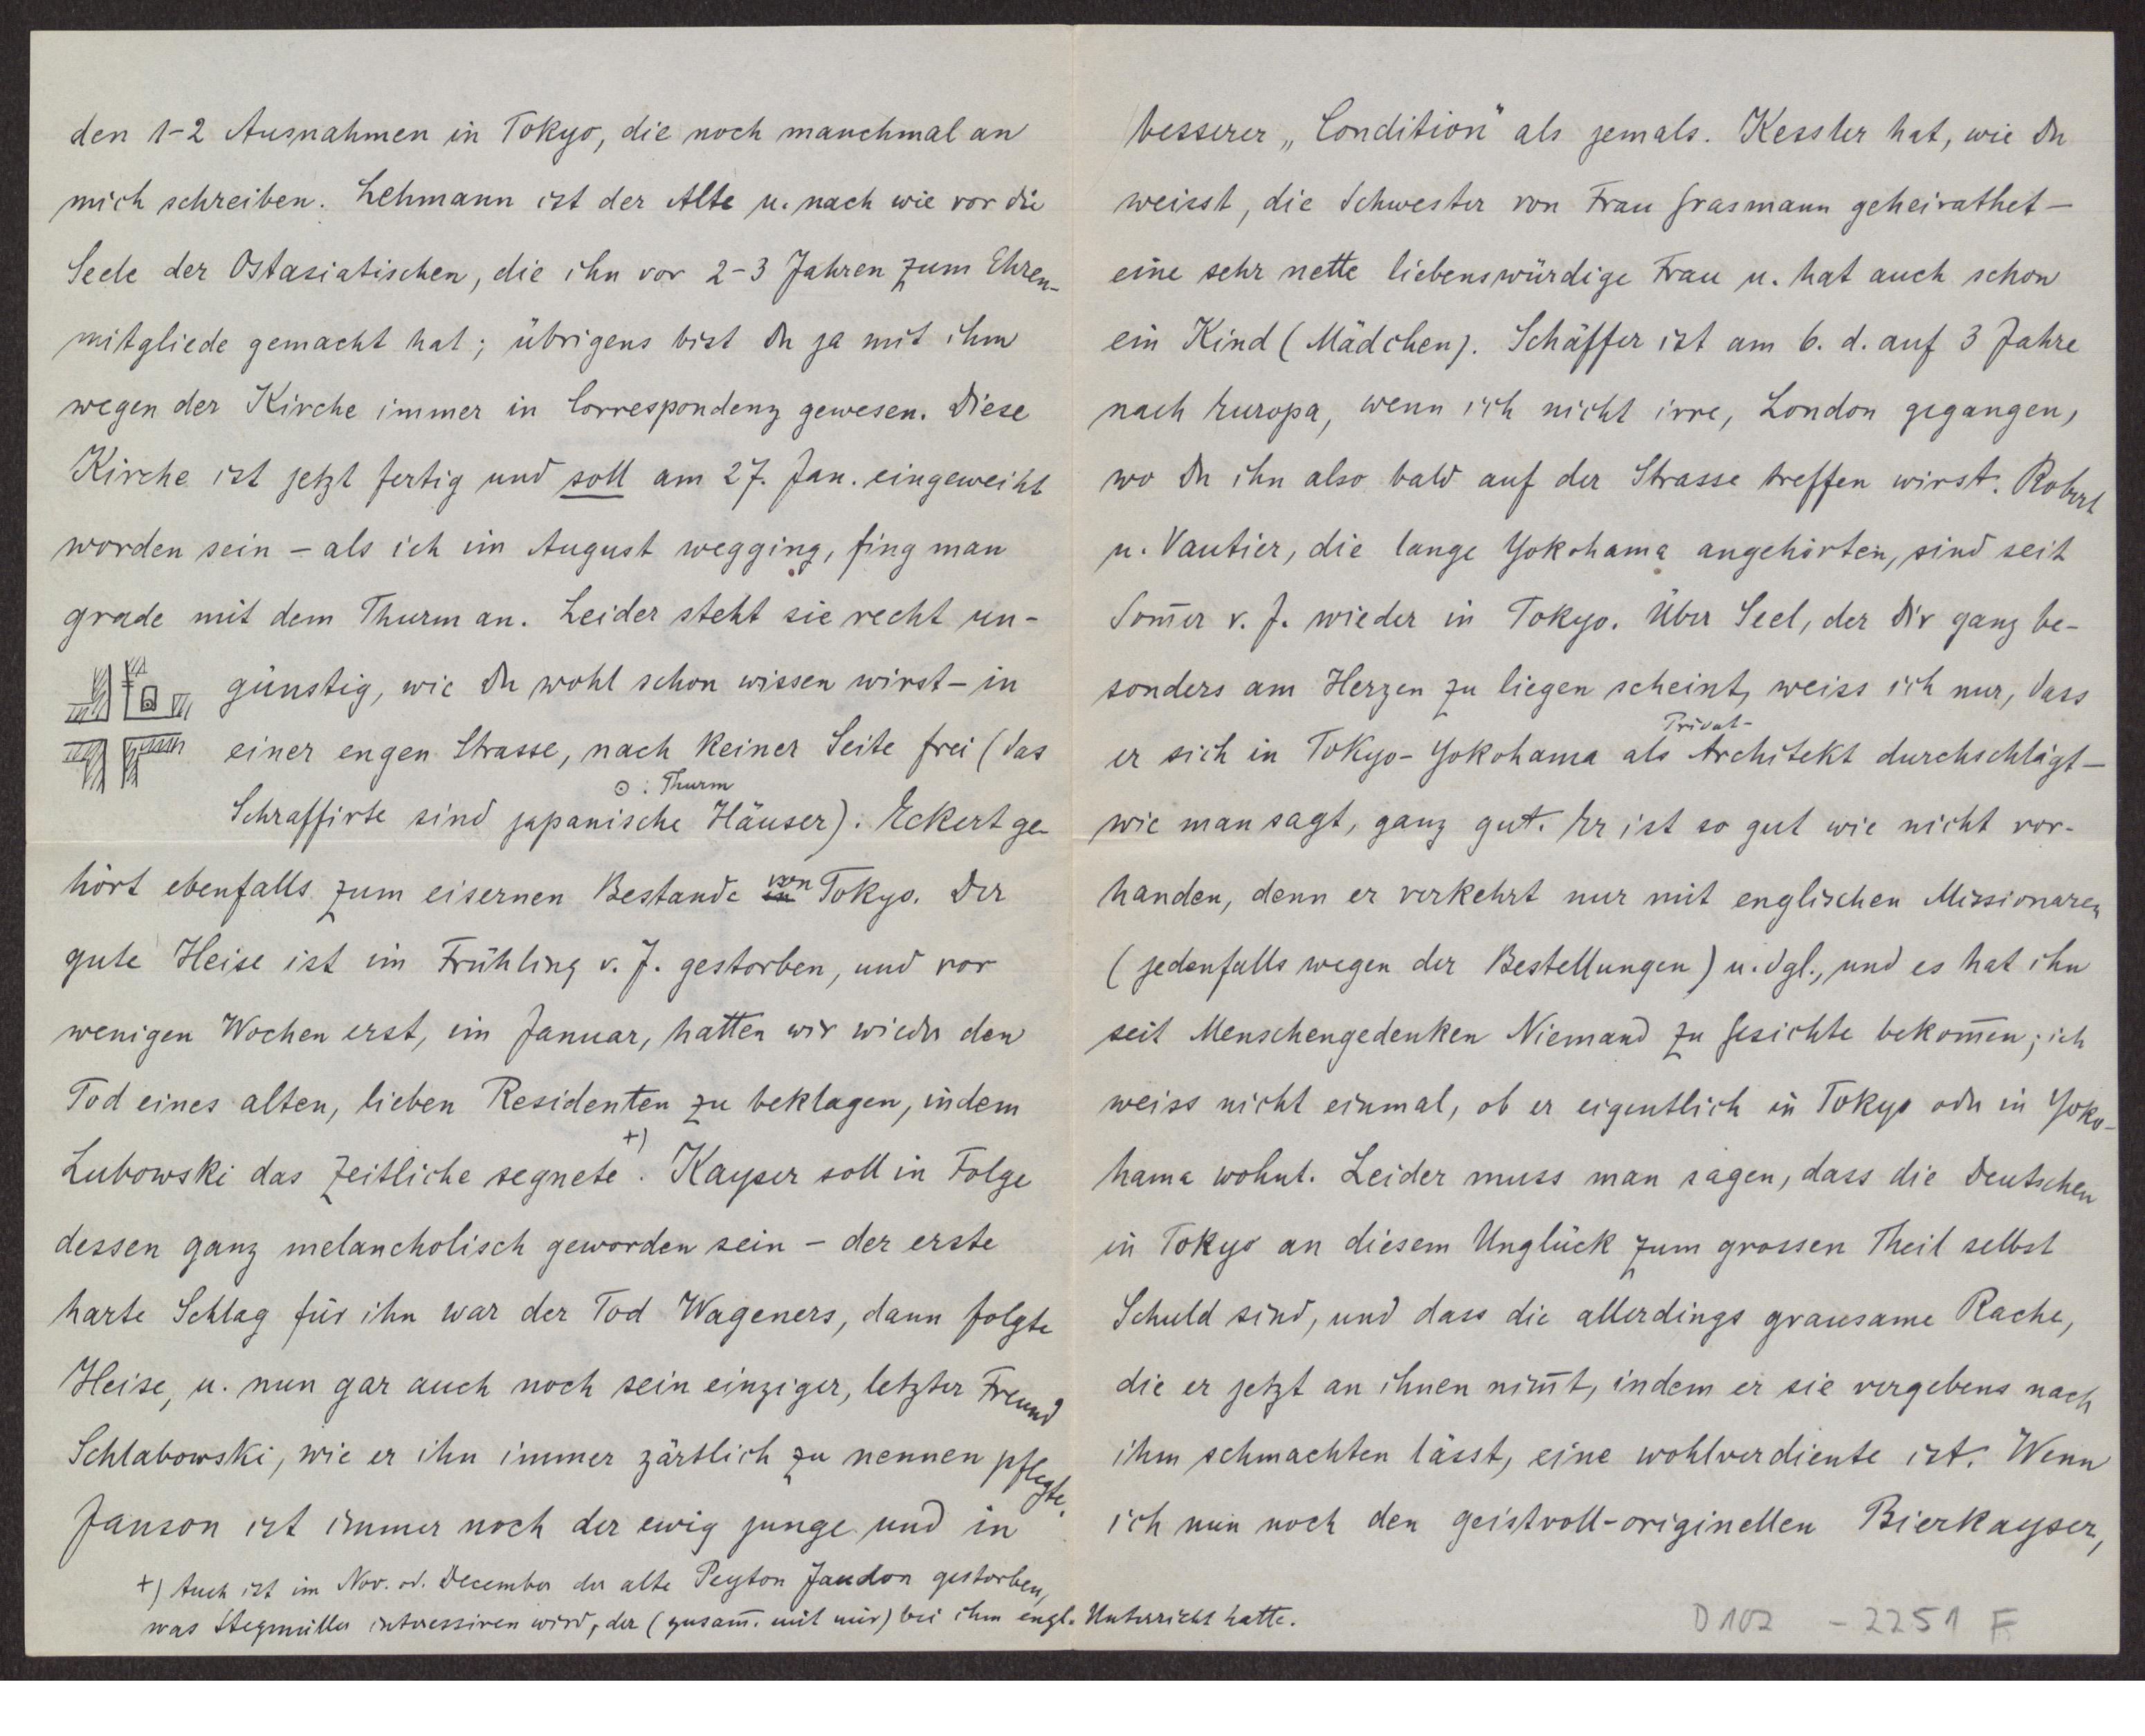 den 1-2 Ausnahmen in Tokyo, die noch manchmal an
mich schreiben. Lehmann ist der Alte u. nach wie vor die
Seele der Ostasiatischen, die ihn vor 2-3 Jahren zum Ehren-
mitgliede gemacht hat; übrigens bist Du ja mit ihm
wegen der Kirche immer in Correspondenz gewesen. Diese
Kirche ist jetzt fertig und soll am 27. Jan. eingeweiht
worden sein – als ich im August wegging, fing man
grade mit dem Thurm an. Leider steht sie recht un-
günstig, wie Du wohl schon wissen wirst – in
einer engen Strasse, nach keiner Seite frei (das
⊙ : Thurm
Schraffirte sind japanische Häuser). Eckert ge-
hört ebenfalls zum eisernen Bestande von Tokyo. Der
gute Heise ist im Frühling v. J. gestorben, und vor
wenigen Wochen erst, im Januar, hatten wir wieder den
Tod eines alten, lieben Residenten zu beklagen, indem
Lubowski das Zeitliche segnete +). Kayser soll in Folge
dessen ganz melancholisch geworden sein – der erste
harte Schlag für ihn war der Tod Wageners, dann folgte
Heise, u. nun gar auch noch sein einziger, letzter Freund
Schlabowski, wie er ihn immer zärtlich zu nennen pflegte.
Janson ist immer noch der ewig junge und in
+) Auch ist im Nov. od. December der alte Peyton Jaudon gestorben,
was Stegmüller interessiren wird, der (zusam̄. mit mir) bei ihm engl. Unterricht hatte.
besserer „Condition" als jemals. Kessler hat, wie Du
weisst, die Schwester von Frau Grasmann geheirathet –
eine sehr nette liebenswürdige Frau u. hat auch schon
ein Kind (Mädchen). Schäffer ist am 6. d. auf 3 Jahre
nach Europa, wenn ich nicht irre, London gegangen,
wo Du ihn also bald auf der Strasse treffen wirst. Robert
u. Vautier, die lange Yokohama angehörten, sind seit
Som̄er v. J. wieder in Tokyo. Über Seel, der Dir ganz be-
sonders am Herzen zu liegen scheint, weiss ich nur, dass
er sich in Tokyo-Yokohama als Privat-Architekt durchschlägt –
wie man sagt, ganz gut. Er ist so gut wie nicht vor-
handen, denn er verkehrt nur mit englischen Missionaren
(jedenfalls wegen der Bestellungen) u. dgl., und es hat ihn
seit Menschengedenken Niemand zu Gesichte bekom̄en; ich
weiss nicht einmal, ob er eigentlich in Tokyo oder in Yoko-
hama wohnt. Leider muss man sagen, dass die Deutschen
in Tokyo an diesem Unglück zum grossen Theil selbst
Schuld sind, und dass die allerdings grausame Rache,
die er jetzt an ihnen nim̄t, indem er sie vergebens nach
ihm schmachten lässt, eine wohlverdiente ist. Wenn
ich nun noch den geistvoll-originellen Bierkayser,
D 102 - 2251 F